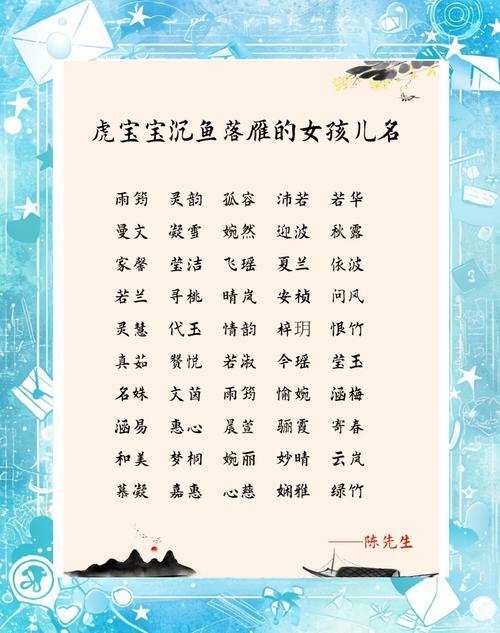 虎宝宝沉鱼落雁的女孩儿名
雨筠 灵韵 孤容 沛若 若华
曼文 凝雪 婉然 迎波 秋露
家馨 莹洁 飞瑶 夏兰 依波
若兰 寻桃 晴岚 安祯 问风
灵慧 代玉 情韵 梓玥 恨竹
真茹 赞悦 若淑 今瑶 莹玉
名姝 文茵 雨筠 愉婉 涵梅
涵易 惠心 晨萱 骊霞 寄春
和美 梦桐 婉丽 妙晴 云岚
慕凝 嘉惠 心慈 娴雅 绿竹
——陈先生